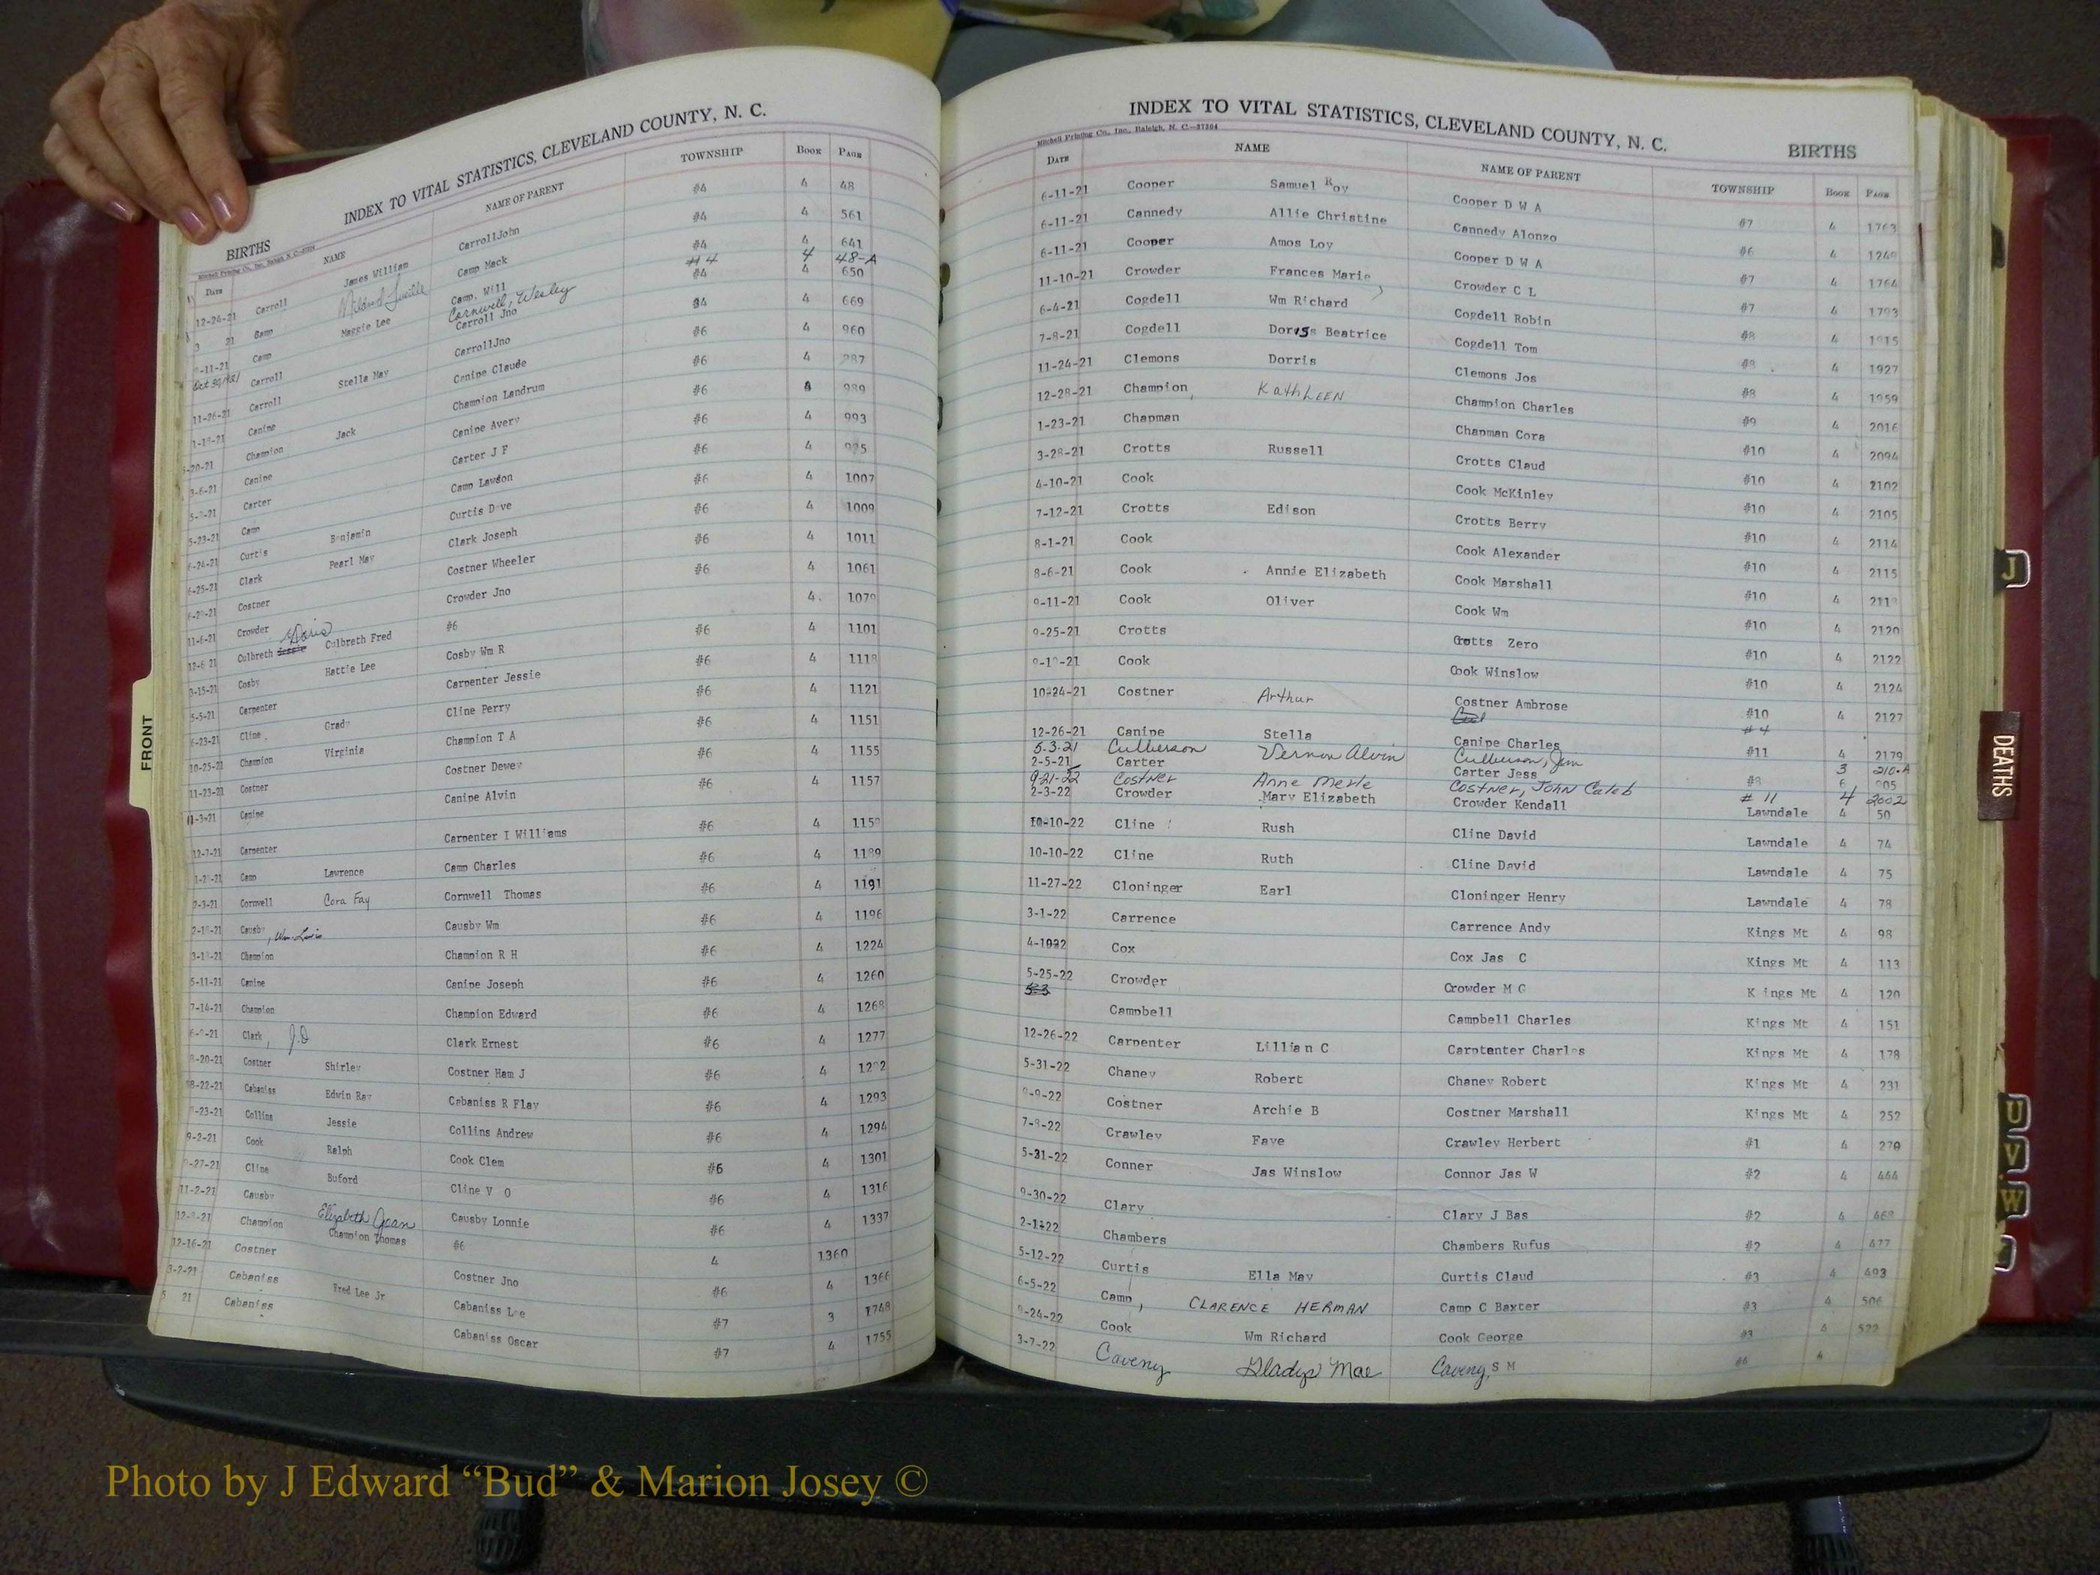 INDEX TO VITAL STATISTICS, CLEVELAND COUNTY, N. C.
BIRTHS
DATE NAME NAME OF PARENT TOWNSHIP BOOK PAGE
12-24-21 Carroll James William Carroll John #4 4 48
Camp Camp Mack #4 4 561
Camp Maggie Lee Camp, Will #4 4 641
Oct 30 1921 Cornwell, Wesley #4 4 48-A
Carroll Carroll Jno #4 4 650
11-26-21 Carroll Stella May Carroll Jno #4 4 669
Canipe Canipe Claude #6 4 960
Champion Jack Champion Landrum #6 4
3-6-21 Canipe Canipe Avery #6 989
Carter Carter J F #6 4 993
5-23-21 Camp Camp Lawdon #6 4
6-24-21 Curtis Benjamin Curtis Dave #6 4 1007
6-25-21 Clark Pearl May Clark Joseph #6 4 1009
Costner Costner Wheeler #6 4 1011
11-6-21 Crowder Crowder Jno #6 4 1061
12-6 21 Culbreth Doris Culbreth Fred #6 4. 1079
3-15-21 Cosby Hattie Lee Cosby Wm R #6 4 1101
5-5-21 Carpenter Carpenter Jessie #6 4 1118
6-23-21 Cline Grady Cline Perry #6 4 1121
10-25-21 Champion Virginia Champion T A #6 4 1151
11-23-21 Costner Costner Dewey #6 4 1155
11-3-21 Canipe Canipe Alvin #6 4 1157
12-7-21 Carpenter Carpenter I Williams #6 4
Camp Lawrence Camp Charles #6 4 1189
2-3-21 Cornwell Cora Fay Cornwell Thomas #6 4 1191
Causby, Wm. Lewis Causby Wm #6 4 1196
Champion Champion R H #6 4 1224
5-11-21 Canipe Canipe Joseph #6 4 1260
7-14-21 Champion Champion Edward #6 4 1268
Clark, J.D Clark Ernest #6 4 1277
8-20-21 Costner Shirley Costner Ham J #6 4
8-22-21 Cabaniss Edwin Ray Cabaniss R Flay #6 4 1293
Collins Jessie Collins Andrew #6 4 1294
9-2-21 Cook Ralph Cook Clem #6 4 1301
9-27-21 Cline Buford Cline V O #6 4 1316
11-2-21 Causby Elizabeth Jean Causby Lonnie #6 4 1337
Champion Champion Thomas #6 4 1360
12-16-21 Costner Costner Jno #6 4 1366
3-2-21 Cabaniss Fred Lee Jr Cabaniss Lee #7 3 1748
5 21 Cabaniss Cabaniss Oscar #7 4 1755
FRONT
INDEX TO VITAL STATISTICS, CLEVELAND COUNTY, N. C.
Mitchell Printing Co., Inc., Raleigh, N. C.—37204
BIRTHS
DATE NAME NAME OF PARENT TOWNSHIP BOOK PAGE
6-11-21 Cooper Samuel Roy Cooper D W A #7 4 1763
6-11-21 Cannedy Allie Christine Cannedy Alonzo #6 4
6-11-21 Cooper Amos Loy Cooper D W A #7 4 1764
11-10-21 Crowder Frances Marie Crowder C L #7 4 1793
6-4-21 Cogdell Wm Richard Cogdell Robin #8 4 1915
7-8-21 Cogdell Doriss Beatrice Cogdell Tom #8 4 1927
11-24-21 Clemons Dorris Clemons Jos #8 4 1959
12-28-21 Champion, KathLEEN Champion Charles #9 4 2016
1-23-21 Chapman Chapman Cora #10 4 2094
3-28-21 Crotts Russell Crotts Claud #10 4 2102
4-10-21 Cook Cook McKinley #10 4 2105
7-12-21 Crotts Edison Crotts Berry #10 4 2114
8-1-21 Cook Cook Alexander #10 4 2115
8-6-21 Cook Annie Elizabeth Cook Marshall #10 4
9-11-21 Cook Oliver Cook Wm #10 4 2120
9-25-21 Crotts Crotts Zero #10 4 2122
Cook Cook Winslow #10 4 2124
10-24-21 Costner Arthur Costner Ambrose #10 4 2127
#4
12-26-21 Canipe Stella Canipe Charles #11 4 2179
5-3-21 Culberson Vernon Alvin Culberson, Jim 3 210-A
2-5-21 Carter Carter Jess #8 6
9-21-22 Costner Anne Merle Costner, John Caleb # 11 4 2002
2-3-22 Crowder Mary Elizabeth Crowder Kendall Lawndale 4 50
10-10-22 Cline Rush Cline David Lawndale 4 74
10-10-22 Cline Ruth Cline David Lawndale 4 75
11-27-22 Cloninger Earl Cloninger Henry Lawndale 4 78
3-1-22 Carrence Carrence Andy Kings Mt 4 98
4-1922 Cox Cox Jas C Kings Mt 4 113
5-25-22 Crowder Crowder M G K ings Mt 4 120
Campbell Campbell Charles Kings Mt 4 151
12-26-22 Carpenter Lillian C Carptenter Charles Kings Mt 4 178
5-31-22 Chaney Robert Chaney Robert Kings Mt 4 231
9-9-22 Costner Archie B Costner Marshall Kings Mt 4 252
7-8-22 Crawley Faye Crawley Herbert #1 4 270
5-31-22 Conner Jas Winslow Connor Jas W #2 4 464
9-30-22 Clary Clary J Bas #2 4
2-1-22 Chambers Chambers Rufus #2 4 477
5-12-22 Curtis Ella May Curtis Claud #3 4 493
6-5-22 Camp, CLARENCE HERMAN Camp C Baxter #3 4 506
9-24-22 Cook Wm Richard Cook George #3 4 522
3-7-22 Caveny Gladys Mae Caveny, S M #6 4
J
DEATHS
U
V
W
Photo by J Edward “Bud” & Marion Josey ©